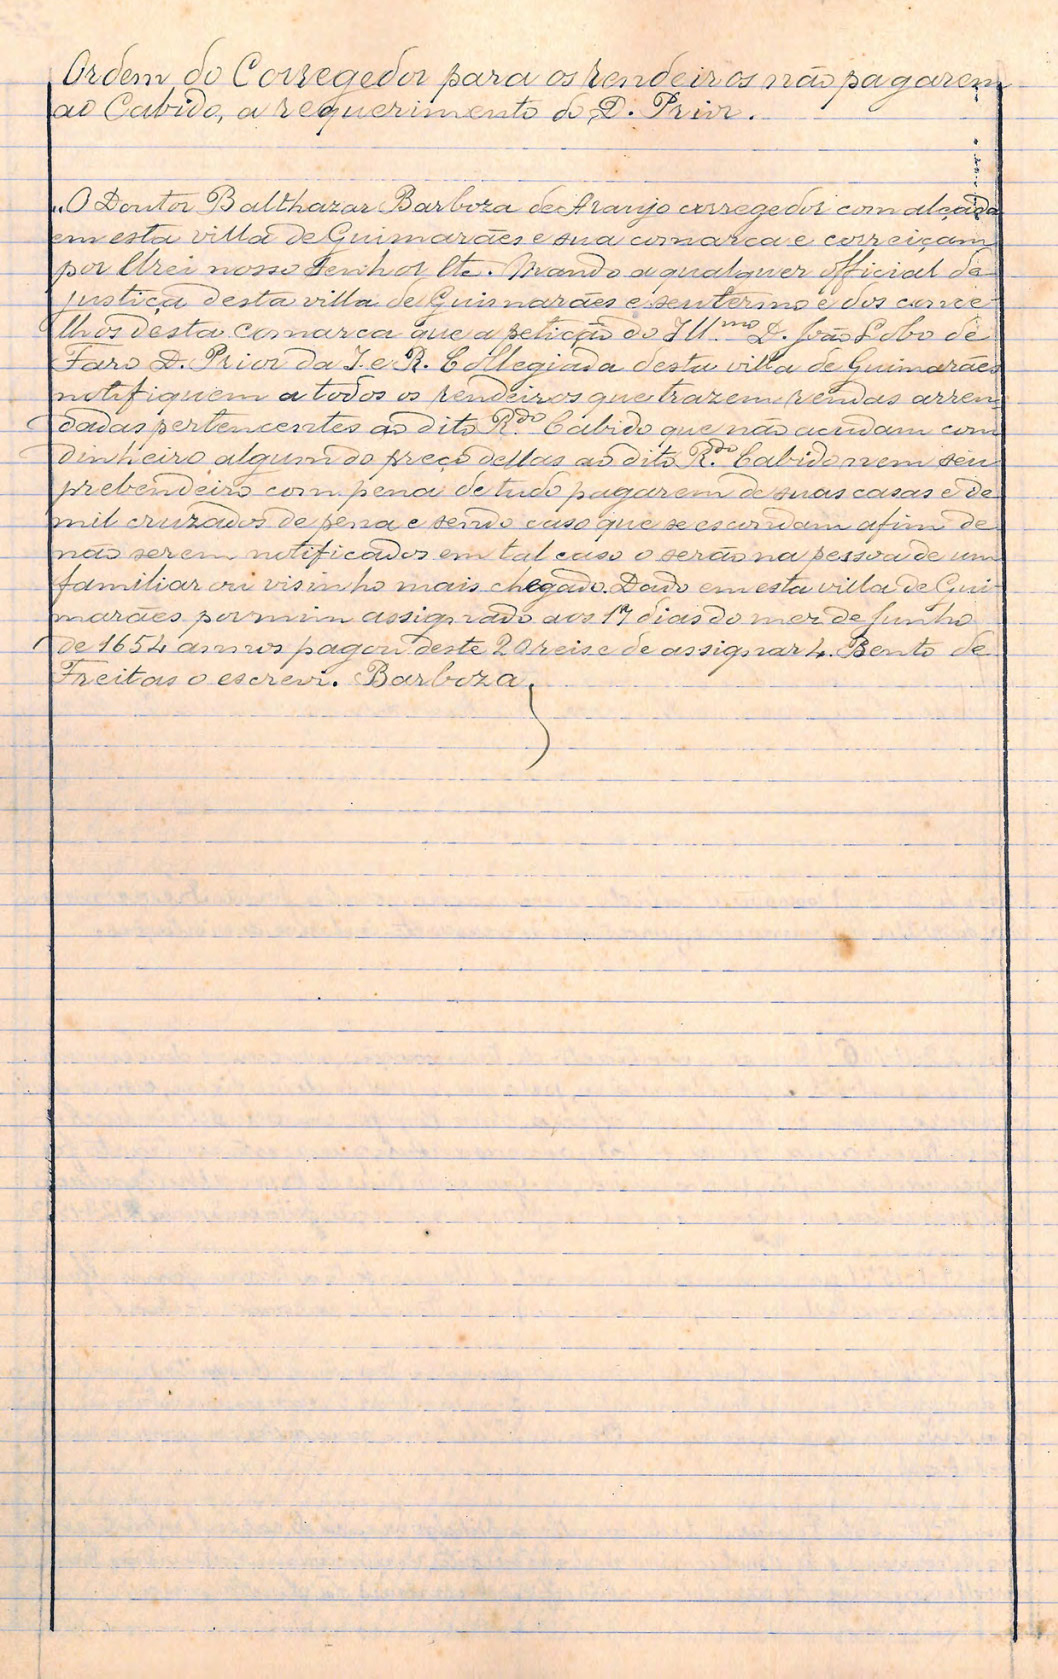 Ordem do Corregedor para os rendeiros não pagarem
ao Cabido, a requerimento do D. Prior.
"O Doutor Balthazar Barboza de Araujo corregedor com alçada
em esta villa de Guimarães e sua comarca e correiçam
por Elrei nosso Senhor Etc. Mando a qualquer official de
justiça desta villa de Guimarães e seu termo e dos conce-
lhos desta comarca que a petição do Ill.mo D. João Lobo de
Faro D. Prior da I. e R. Collegiada desta villa de Guimarães
notifiquem a todos os rendeiros que trazem rendas arren-
dadas pertencentes ao dito R.do Cabido que não acudam com
dinheiro algum do preço dellas ao dito R.do Cabido nem seu
prebendeiro com pena de tudo pagarem de suas casas e de
mil cruzados de pena e sendo caso que se escondam afim de
não serem notificados em tal caso o serão na pessoa de um
familiar ou visinho mais chegado. Dado em esta villa de Gui-
marães por mim assignado aos 17 dias do mez de Junho
de 1654 annos pagou deste 20 reis e de assignar 4. Bento de
Freitas o escrevi. Barboza.